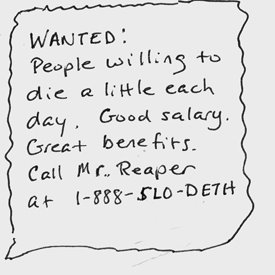 WANTED:
People willing to
die a little each
day. Good salary.
Great benefits.
Call Mr. Reaper
at 1-888-SLO-DETH